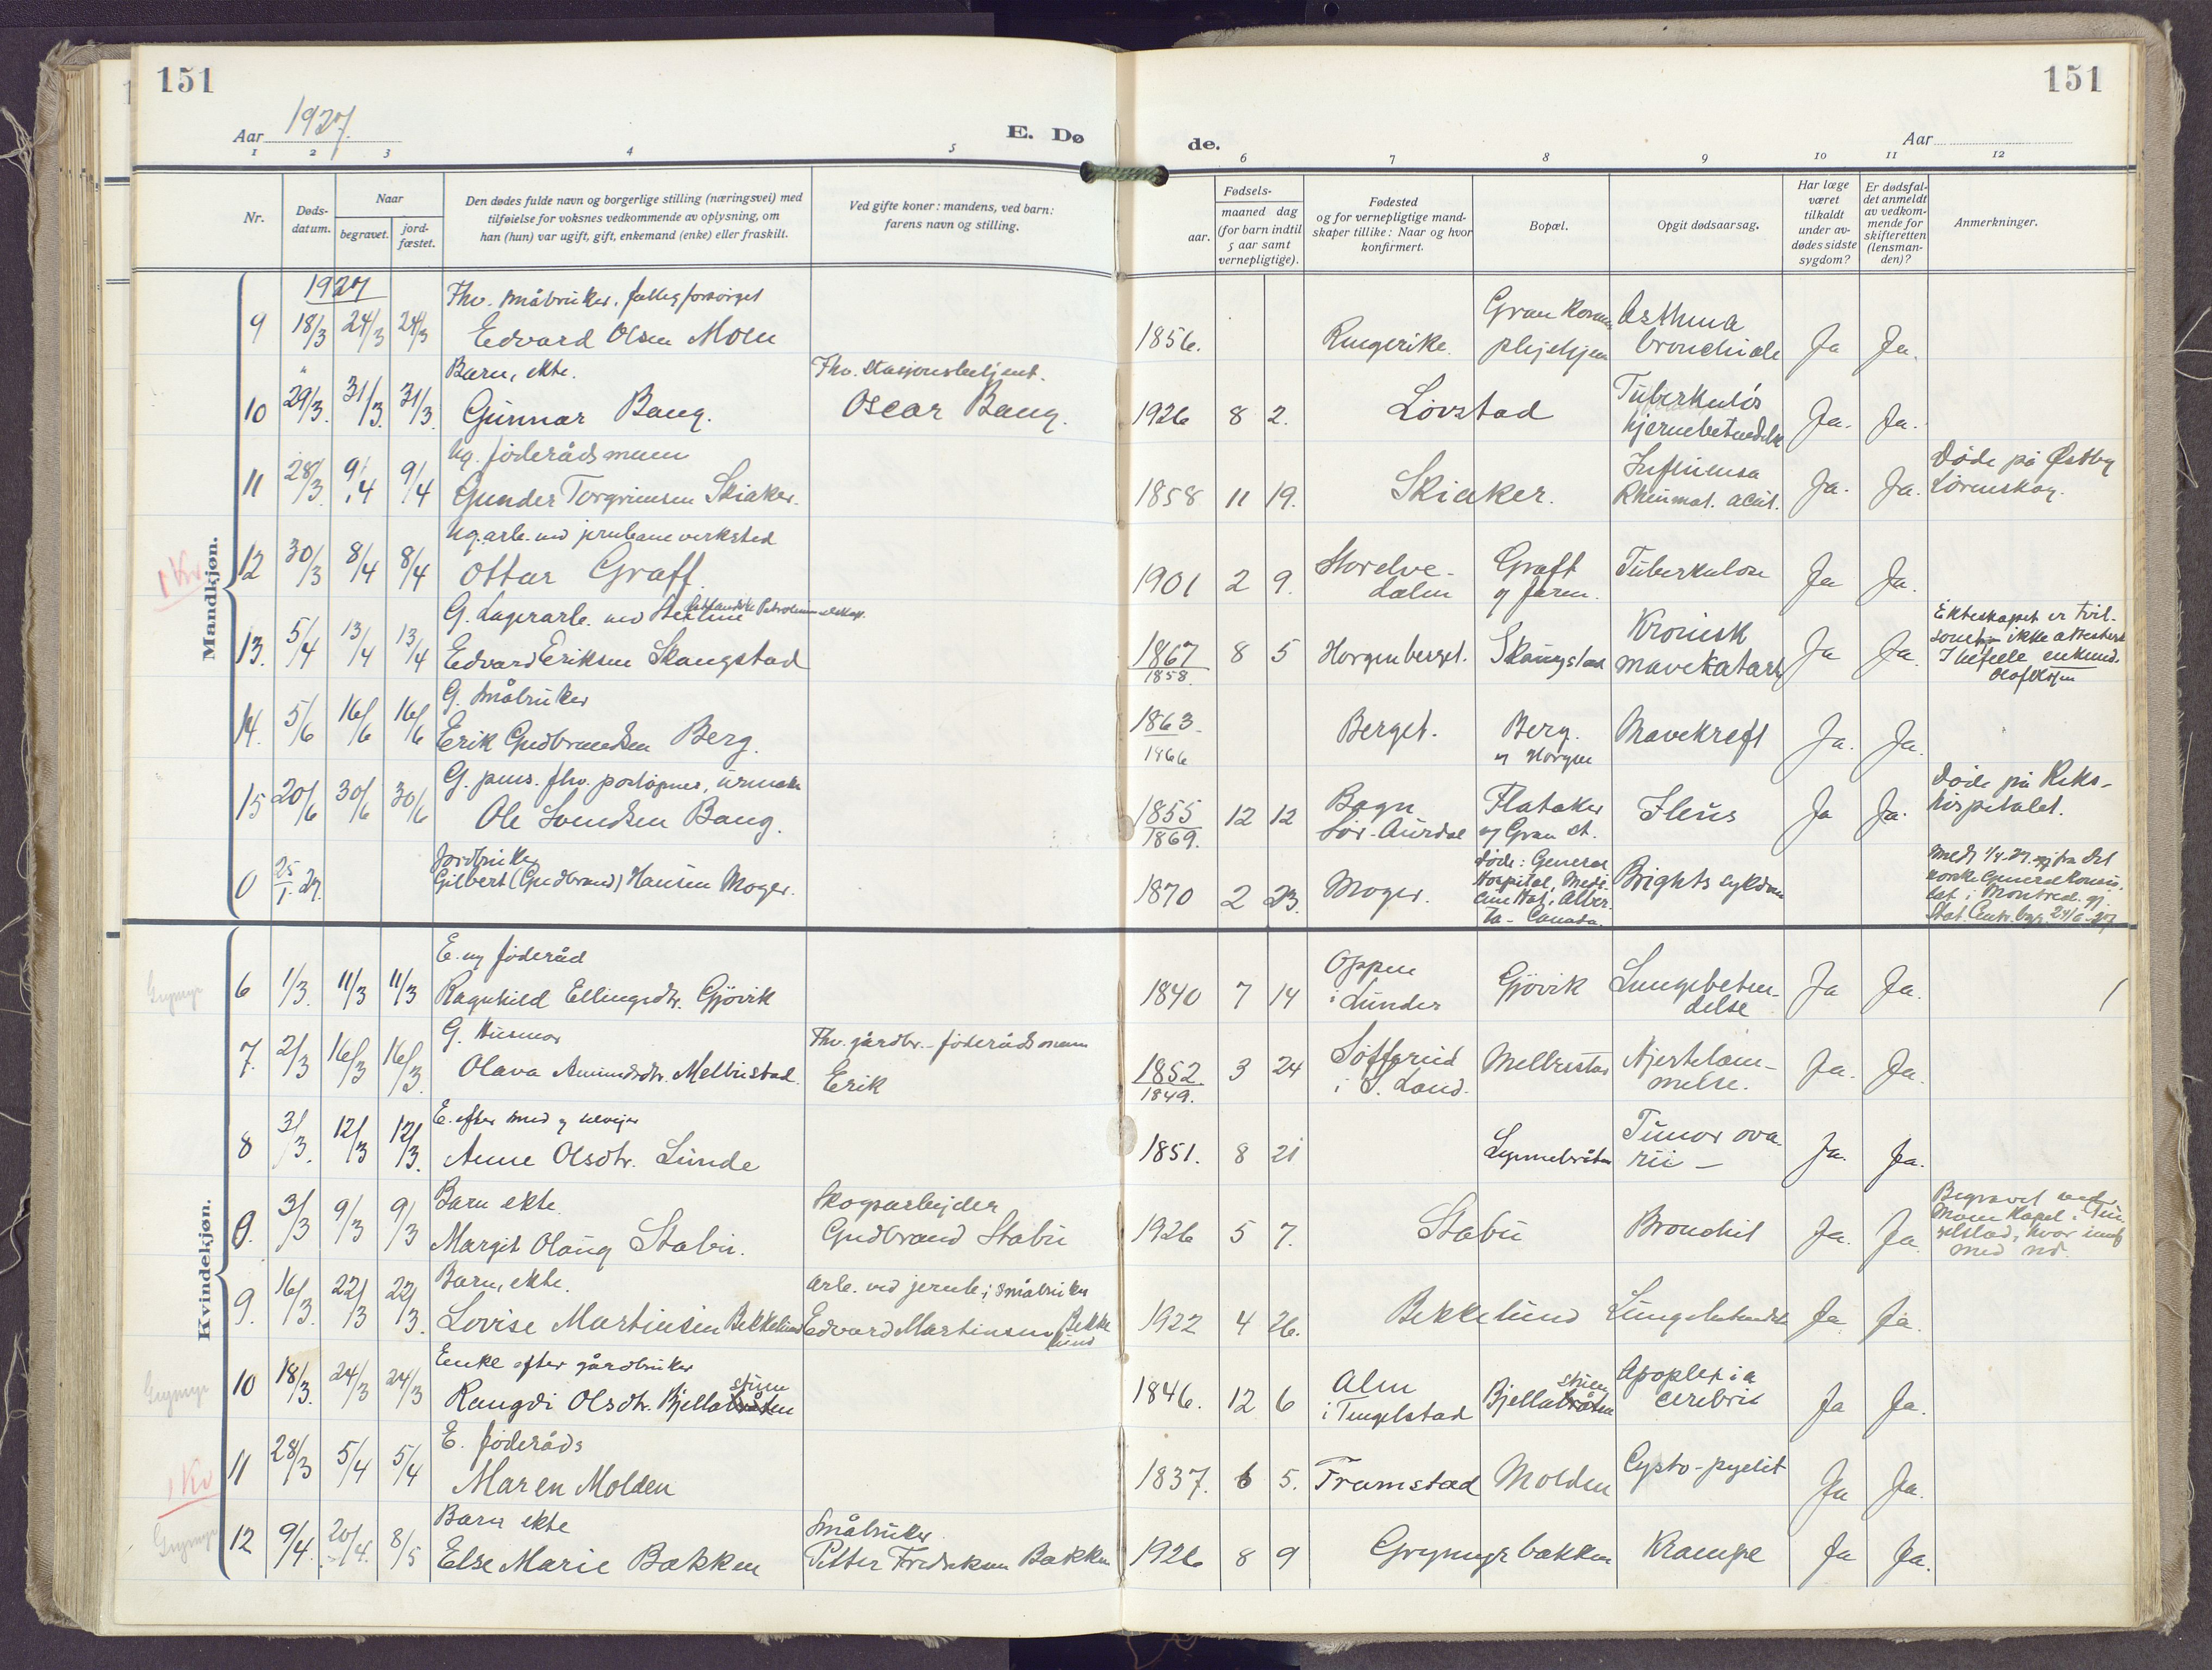 151
151
Aar 1927.
E. Dø
de.
Aar
1 2 3 4 5
6 7 8 9 10 11 12
Nr.
Døds-
datum.
Naar
begravet.
jord-
fæstet.
Den dødes fulde navn og borgerlige stilling (næringsvei) med
tilføielse for voksnes vedkommende av oplysning, om
han (hun) var ugift, gift, enkemand (enke) eller fraskilt.
Ved gifte koner: mandens, ved barn:
farens navn og stilling.
Fødsels-
aar.
maaned dag
(for barn indtil
5 aar samt
vernepligtige).
Fødested
og for vernepligtige mand-
skaper tillike: Naar og hvor
konfirmert.
Bopæl.
Opgit dødsaarsag.
Har læge
været
tilkaldt
under av-
dødes sidste
sygdom?
Er dødsfal-
det anmeldt
av vedkom-
mende for
skifteretten
(lensman-
den)?
Anmerkninger.
Mandkjøn.
1927
Fhv. småbruker, fattigforsørget
9 18/3 24/3 24/3 Edvard Olsen Moen
1856. Ringerike. Gran Komm. plejehjem Asthma bronchiale Ja Ja.
Barn, ekte. Fhv. stasjonsbetjent.
10 29/3. 31/3. 31/3. Gunnar Bang. Oscar Bang.
1926 8 2. Lovstad Tuberkuløs hjernebetendelse Ja. Ja.
Ug. føderådsmann
11 28/3. 9/4 9/4 Gunder Torgrimsen Skiaker.
1858 11 19. Skiaker. Influensa Rheumat. acut. Ja. Ja. Døde på Østby Lørenskog.
Ug. arb. ved jernbaneverksted
1 Kv
12 30/3 8/4 8/4 Ottar Graff.
1901 2 9. Storelve- Graff og farm. Tuberkulose Ja Ja.
G. Lagerarb. ved Østlandske Petroleumselskap.
13. 5/4 13/4 13/4 Edvard Eriksen Skangstad
1867 1858. 8 5 Horgenberget. Skangstad Kronisk mavekatarr Ja Ja. Ekteskapet er tvil-
somt, ikke attestert
I tilfelle enkemd.
G. Småbruker
14. 5/6 16/6 16/6 Erik Gudbrandsen Berg.
1863. 1866 Berget. Berg. og Horgen Mavekreft Ja. Ja.
G. pens. fhv. poståpner, urmaker
15 20/6 30/6 30/6 Ole Svendsen Bang.
1855 1869. 12 12 Bagn Sør-Aurdal Flataker og Gran st. Ileus Ja Ja. Døde på Riks-
hospitalet.
Jordbruker
0 25/1.27. Gilbert (Gudbrand) Hansen Moger.
1870 2 23. Moger. Døde: General Hospital, Medi-
cine Hat, Alber-
ta - Canada. Brights sykdom
Medt 1/4-27 fra det
norske Generalkonsu-
lat i Montreal gj.
Stat. Centr. byr. 24/6-27.
Kvindekjøn.
E. og føderåd
6 1/3. 11/3 11/3 Ragnhild Ellingsdtr. Gjövik
1840 7 14 Oppen i Lunder Gjövik Lungebeten-
delse Ja Ja.
G. Husmor Fhv. gårdbr. - føderådsmann
7. 2/3 16/3 16/3. Olava Amundsdtr. Mellbustad. Erik
1852. 1849. 3 24 i S. Land. Mellbustad Hjertelam-
melse. Ja. Ja.
E. efter smed
8 3/3. 12/3 12/3. Anne Olsdtr. Lunde
1851. 8 21 Tumor ova-
rii - Ja. Ja.
Barn ekte. Skogsarbejder
0. 3/3 9/3 9/3 Margit Olaug Stabu. Gudbrand Stabu
1926 5 7. Stabu Bronchit Ja. Ja. Begravet ved
Moen Kapel
Barn, ekte. Arb. ved jernb.; småbruker
9. 16/3. 22/3 22/3. Lovise Martinsen Bekkelund Edvard Martinsen Bekkelund
1922 4 26. Bekkelund Lungebetendelse Ja Ja.
Enke efter gårdbruker
10 18/3. 24/3 24/3 Rangdi Olsdtr. Bjellabråten stuen
1846. 12 6 Alm i Tingelstad Bjellabråten stuen Apoplexia cerebri Ja Ja.
E. føderåds
1 Kv
11 28/3 5/4 5/4 Maren Molden
1837. 6 5. Framstad Molden Cysto-pyelit Ja Ja.
Barn ekte Småbruker
12 9/4. 20/4. 8/5 Else Marie Bakken Petter Fredriksen Bakken
1926 8 9 Grymyrbakken Krampe Ja Ja.